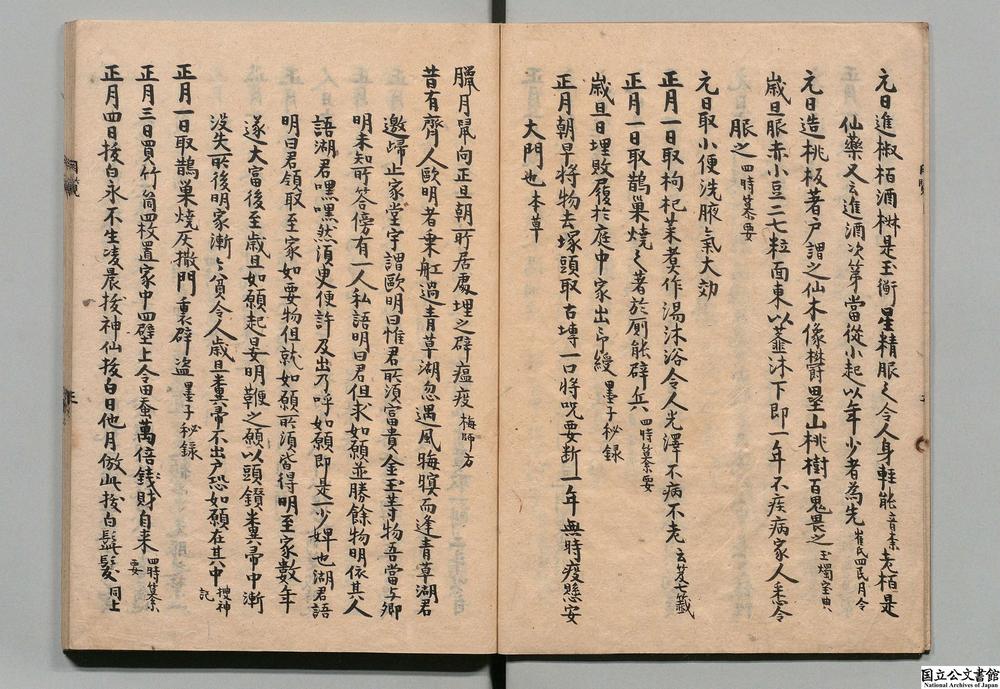 元日進椒栢酒椒是玉衡星精服之令人身輕能音柰老栢是
仙藥又云進酒次第當從小起以年少者為先崔氏四民月令
元日造桃板著戸謂之仙木像欝壘山桃樹百鬼畏之玉燭宝典
歳旦服赤小豆二七粒面東以虀汁下即一年不疾病家人悉令
服之四時纂要
元日取小便洗腋氣大効
正月一日取枸杞菜煮作湯沐浴令人光澤不病不老
正月一日取鵲巣燒之著於厠能辟兵四時纂要
歳旦日埋敗履於庭中家出印綬墨子秘録
正月朝早将物去塚頭取古塼一口将咒要断一年無時疫懸安
大門也本草
臘月鼠向正旦朝所居處埋之辟瘟疫梅師方
昔有齊人歐明者乗舡過青草湖忽遇風晦暝而逢青草湖君
邀歸止家堂宇謂歐明曰惟君所須富貴金玉等物吾當与卿
明未知所答傍有一人私語明曰君但求如願並勝餘物明依其人
語湖君嘿嘿然須臾便許及出乃呼如願即是一少婢也湖君語
明曰君領取至家如要物但就如願所須皆得明至家數年
遂大富後至歳旦如願起晏明鞭之願以頭鑚糞帚中漸
没失所後明家漸々貧今人歳旦糞帚不出戸恐如願在其中捜神記
正月一日取鵲巣燒灰撒門裏辟盗墨子秘録
正月三日買竹筒四枚置家中四壁上令田蚕萬倍錢財自来四時纂要
正月四日拔白永不生凌晨拔神仙拔白日他月倣此拔白鬚髪同上
国立公文書館
National Archives of Japan